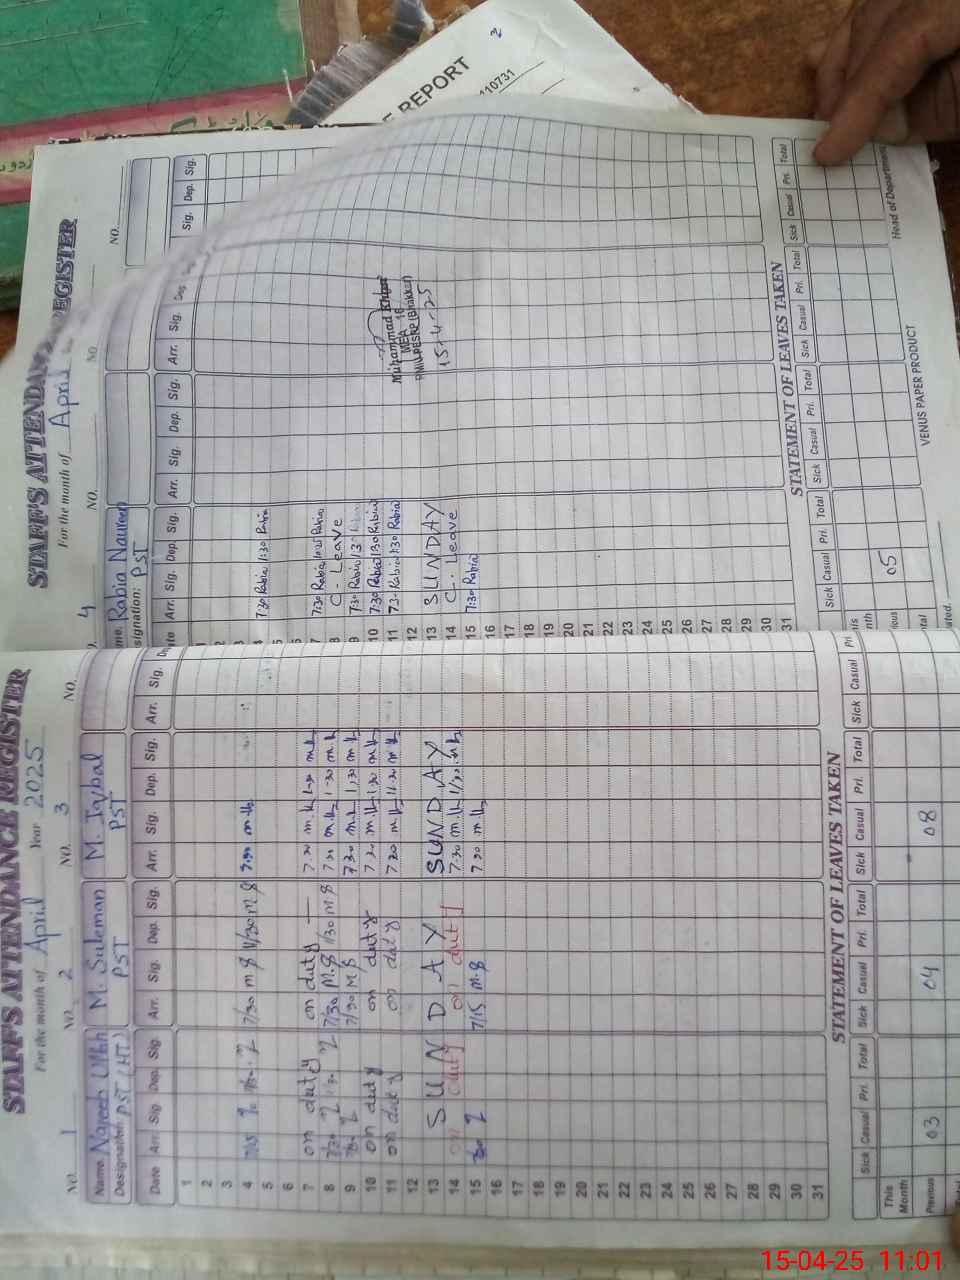 STAFF'S ATTENDANCE REGISTER
For the month of April Year 2025
NO. 1 NO. 2 NO. 3 NO.
Name. M. Suleman M. Iqbal
Designation: PST (HT) PST PST
Date Arr. Sig. Dep. Sig. Arr. Sig. Dep. Sig. Arr. Sig. Dep. Sig. Arr. Sig.
1
2
3
4 7/15 7/30 M.S 11/30 M.S 7.30 m.Ib
5
6
7 on duty on duty — 7.30 m.Ib 1.30 m.Ib
8 7/30 1.30 7/30 M.S 1/30 M.S 7.30 m.Ib 1.30 m.Ib
9 7/30 7/30 M.S 7.30 m.Ib 1.30 m.Ib
10 on duty on duty 7.30 m.Ib 1.30 m.Ib
11 on duty on duty 7.30 m.Ib 11.30 m.Ib
12
13 SUNDAY SUNDAY
14 on duty on duty 7.30 m.Ib 1/30 m.Ib
15 7/15 M.S 7.30 m.Ib
16
17
18
19
20
21
22
23
24
25
26
27
28
29
30
31
STATEMENT OF LEAVES TAKEN STATEMENT OF LEAVES TAKEN
Sick Casual Pri. Total Sick Casual Pri. Total Sick Casual Pri. Total Sick Casual Pri.
This Month
Previous 03 04 08
STAFF'S ATTENDANCE REGISTER
For the month of April
4 NO. NO NO.
Rabia Naureen
signation: PST
Arr. Sig. Dep. Sig. Arr. Sig. Dep. Sig. Arr. Sig. Dep. Sig. Dep. Sig.
4 7:30 Rabia 1:30 Rabia
7 7:30 Rabia Rabia
8 C. Leave
9 7:30 Rabia 1:30 Rabia
10 7:30 Rabia 1:30 Rabia
11 7:30 Rabia 1:30 Rabia
12
13 SUNDAY
14 C. Leave
15 7:30 Rabia
16
17
18
19
20
21
22
23
24
25
26
27
28
29
30
31
Muhammad
MEA 16
PMIU PESRP (Bhakkar)
15-4-25
STATEMENT OF LEAVES TAKEN STATEMENT OF LEAVES TAKEN
Sick Casual Pri. Total Sick Casual Pri. Total Sick Casual Pri. Total Sick Casual Pri. Total
05
VENUS PAPER PRODUCT
Head of Department
REPORT
110731
15-04-25 11:01